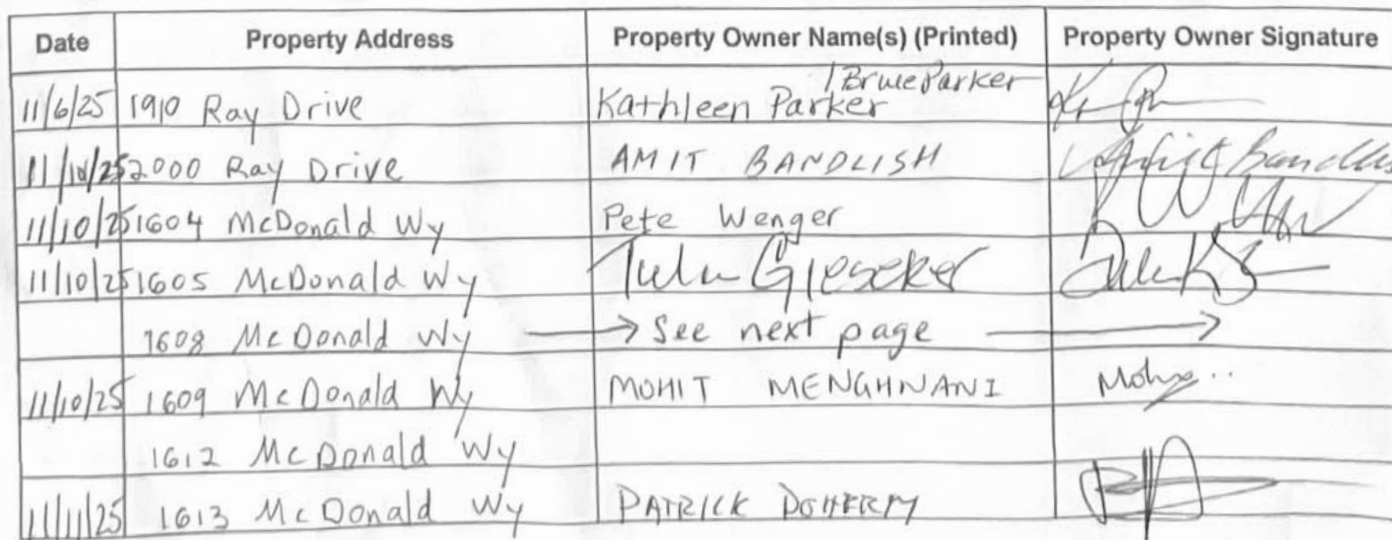 Date Property Address Property Owner Name(s) (Printed) Property Owner Signature
11/6/25 1910 Ray Drive Kathleen Parker / Bruce Parker
11/10/25 2000 Ray Drive AMIT BANDLISH Amit Bandlish
11/10/25 1604 McDonald Wy Pete Wenger
11/10/25 1605 McDonald Wy Gieseker
1608 McDonald Wy → See next page →
11/10/25 1609 McDonald Wy MOHIT MENGHNANI
1612 McDonald Wy
11/11/25 1613 McDonald Wy PATRICK DOHERTY